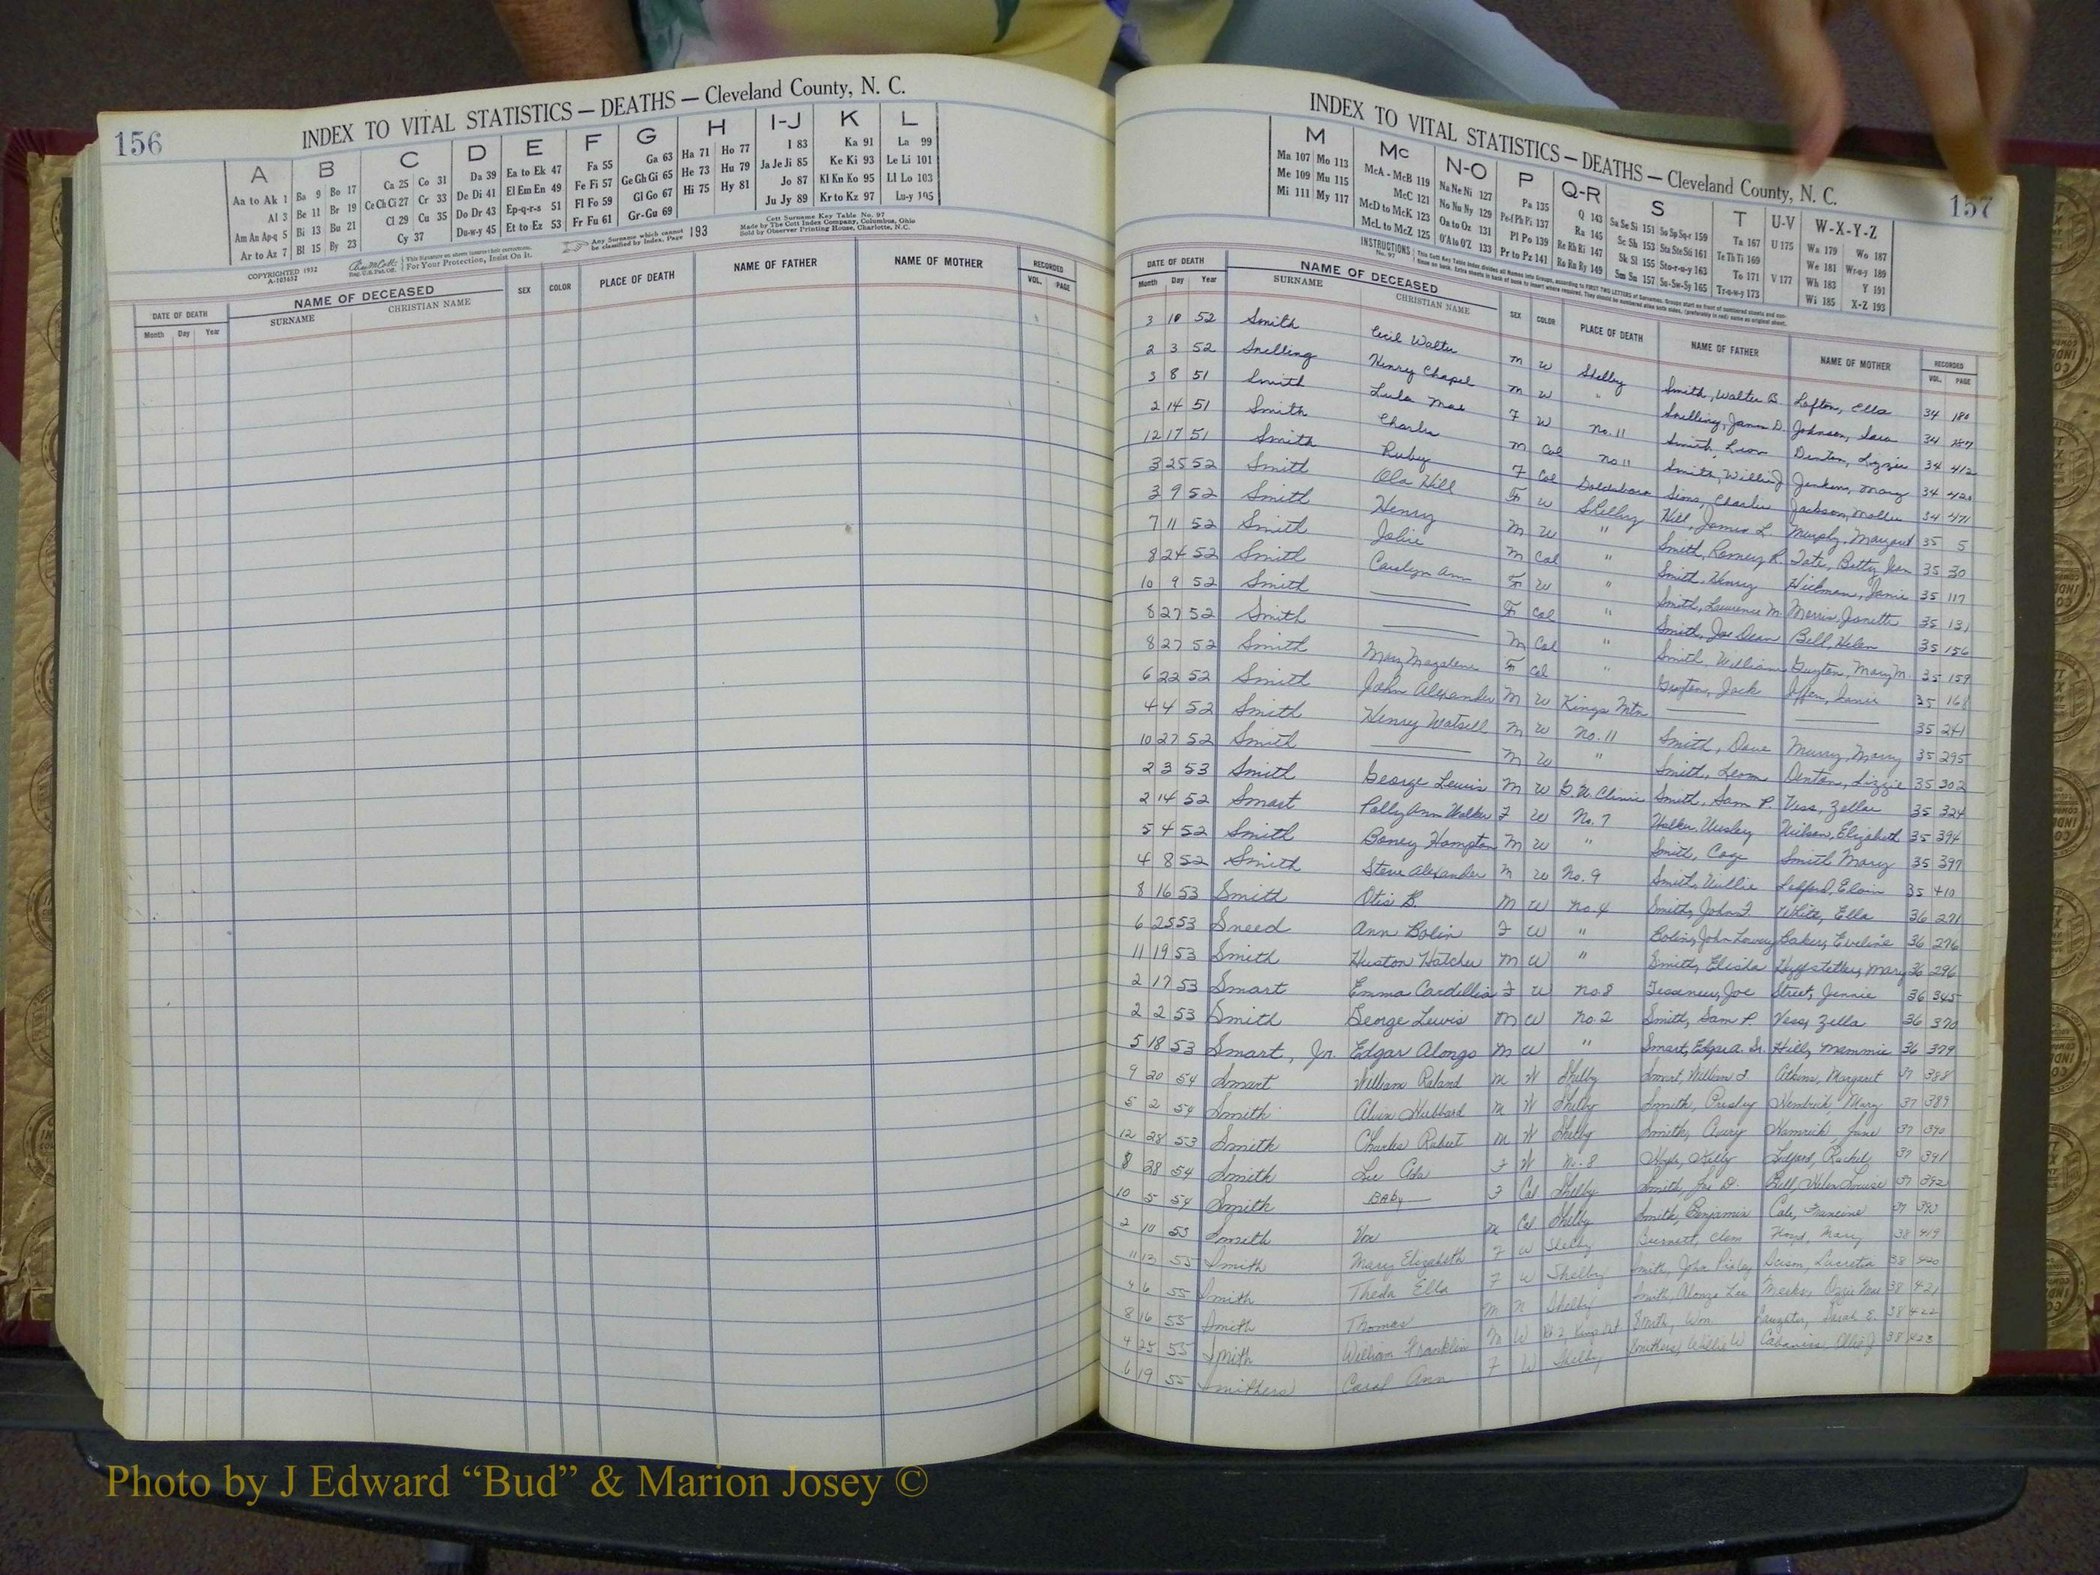 156
INDEX TO VITAL STATISTICS — DEATHS — Cleveland County, N. C.
A B C D E F G H I-J K L
Aa to Ak 1 Ba 9 Bo 17 Ca 25 Co 31 Da 39 Ea to Ek 47 Fa 55 Ga 63 Ha 71 Ho 77 I 83 Ka 91 La 99
Al 3 Be 11 Br 19 Ce Ch Ci 27 Cr 33 De Di 41 El Em En 49 Fe Fi 57 Ge Gh Gi 65 He 73 Hu 79 Ja Je Ji 85 Ke Ki 93 Le Li 101
Am An Ap-q 5 Bi 13 Bu 21 Cl 29 Cu 35 Do Dr 43 Ep-q-r-s 51 Fl Fo 59 Gl Go 67 Hi 75 Hy 81 Jo 87 Kl Kn Ko 95 Ll Lo 103
Ar to Az 7 Bl 15 By 23 Cy 37 Du-w-y 45 Et to Ez 53 Fr Fu 61 Gr-Gu 69 Ju Jy 89 Kr to Kz 97 Lu-y 105
COPYRIGHTED 1932
A-103652
This Signature on sheets insures their correctness.
For Your Protection, Insist On It.
Any Surname which cannot be classified by Index, Page 193
Cott Surname Key Table No. 97
Made by The Cott Index Company, Columbus, Ohio
Sold by Observer Printing House, Charlotte, N.C.
DATE OF DEATH NAME OF DECEASED SEX COLOR PLACE OF DEATH NAME OF FATHER NAME OF MOTHER RECORDED
Month Day Year SURNAME CHRISTIAN NAME VOL. PAGE
INDEX TO VITAL STATISTICS — DEATHS — Cleveland County, N. C.
157
M Mc N-O P Q-R S T U-V W-X-Y-Z
Ma 107 Mo 113 McA - McB 119 Na Ne Ni 127 Pa 135 Q 143 Sa Se Si 151 So Sp Sq-r 159 Ta 167 U 175 Wa 179 Wo 187
Me 109 Mu 115 McC 121 No Nu Ny 129 Pe-f Ph Pi 137 Ra 145 Sc Sh 153 Sta Ste Sti 161 Te Th Ti 169 We 181 Wr-u-y 189
Mi 111 My 117 McD to McK 123 Oa to Oz 131 Pl Po 139 Re Rh Ri 147 Sk Sl 155 Sto-r-u-y 163 To 171 V 177 Wh 183 Y 191
McL to McZ 125 O'A to O'Z 133 Pr to Pz 141 Ro Ru Ry 149 Sm Sn 157 Su-Sw-Sy 165 Tr-u-w-y 173 Wi 185 X-Z 193
INSTRUCTIONS No. 97
DATE OF DEATH NAME OF DECEASED SEX COLOR PLACE OF DEATH NAME OF FATHER NAME OF MOTHER RECORDED
Month Day Year SURNAME CHRISTIAN NAME VOL. PAGE
3 10 52 Smith Cecil Walter M W Shelby Smith, Walter B. Lofton, Ella 34 180
2 3 52 Snelling Henry Chapel M W " Snelling, James D. Johnson, Sara 34 187
3 8 51 Smith Lula Mae F W No. 11 Smith, Leon Denton, Lizzie 34 412
2 14 51 Smith Charles M Col No 11 Smith, Willie J Jenkins, Mary 34 420
12 17 51 Smith Ruby F Col Goldsboro Sims, Charlie Jackson, Mollie 34 471
3 25 52 Smith Ola Hill F W Shelby Hill, James L. Murphy, Margaret 35 5
3 9 52 Smith Henry M W " Smith, R. Tate, Betty Jean 35 30
7 11 52 Smith Jolie M Col " Smith, Henry Hickman, Janie 35 117
8 24 52 Smith Carolyn Ann F W " Smith, Lawrence M. Morris, Janette 35 131
10 9 52 Smith —— F Col " Smith, Joe Dean Bell, Helen 35 156
8 27 52 Smith —— M Col " Smith, William Guyton, Mary M. 35 159
8 27 52 Smith Mary Magdelene F Col " Guyton, Jack Janie 35 168
6 22 52 Smith John Alexander M W Kings Mtn —— —— 35 241
4 4 52 Smith Henry Watsell M W No. 11 Smith, Dave Murry, Mary 35 295
10 27 52 Smith —— M W " Smith, Leon Denton, Lizzie 35 302
2 3 53 Smith George Lewis M W G.W. Clinic Smith, Sam P. Vess, Zellar 35 324
2 14 52 Smart Polly Ann Walker F W No. 7 Walker, Wesley Wilson, Elizabeth 35 394
5 4 52 Smith Boney Hampton M W " Smith, Coy Smith Mary 35 397
4 8 52 Smith Steve Alexander M W No. 9 Smith, Willie Ledford, 35 410
8 16 53 Smith Otis B. M W No. 4 Smith, John F. White, Ella 36 271
6 25 53 Sneed Ann Bolin F W " Bolin, John Lowery Baker, Eveline 36 276
11 19 53 Smith Huston Hatcher M W " Smith, Elisha Huffstetler, Mary 36 296
2 17 53 Smart Emma Cordellia F W No. 8 Tessnear, Joe Street, Jennie 36 345
2 2 53 Smith George Lewis M W No. 2 Smith, Sam P. Vess, Zella 36 370
5 18 53 Smart, Jr. Edgar Alonzo M W " Smart, Edgar A. Sr. Hill, Memmie 36 379
9 20 54 Smart William Roland M W Shelby Smart, William J Atkins, Margaret 37 388
5 2 54 Smith Alvin Hubbard M W Shelby Smith, Presley Hendrick, Mary 37 389
12 28 53 Smith Charles Robert M W Shelby Smith, Avery Hamrick, Jane 37 390
8 28 54 Smith Lee Ada F W No. 8 Kelly Ledford, Rachel 37 391
10 5 54 Smith Baby F Col Shelby Smith, Joe D. Bell, Helen Louise 37 392
2 10 53 Smith M Col Shelby Smith, Benjamin Cole, Francine 37 393
11 13 55 Smith Mary Elizabeth F W Shelby Burnett, Clem Mary 38 419
4 6 55 Smith Theda Ella F W Shelby Smith, John Lucretia 38 420
8 16 55 Smith Thomas M N Shelby Smith, Alonzo Lee Meeks, Mae 38 421
4 25 55 Smith William Franklin M W Rt 2, Kings Mt Smith, Wm. Sarah E. 38 422
6 19 55 Smithers Carol Ann F W Shelby Smithers, Willie W Cabaniss, Allie J 38 423
Photo by J Edward “Bud” & Marion Josey ©